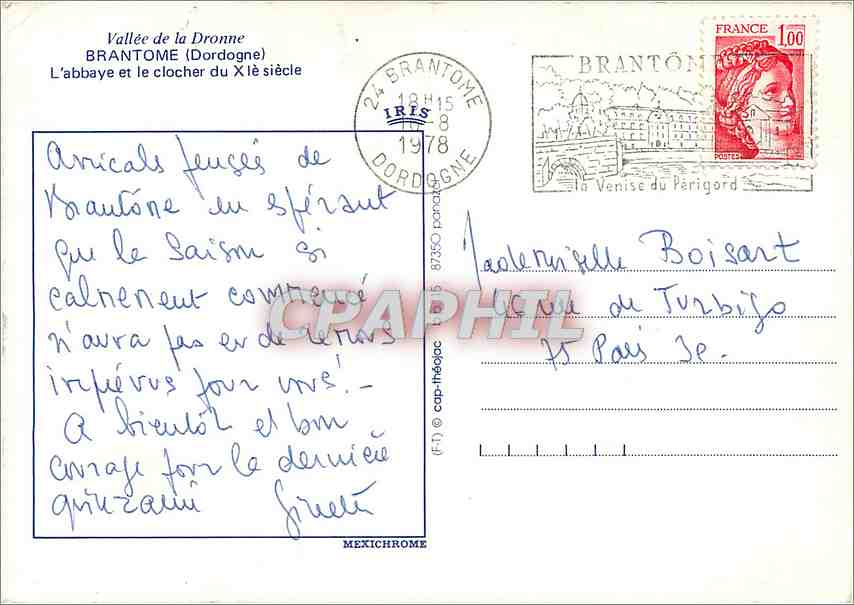 Vallée de la Dronne
BRANTOME (Dordogne)
L'abbaye et le clocher du XIè siècle
24 BRANTOME
18H15
10-8
1978
DORDOGNE
IRIS
BRANTÔME
la Venise du Périgord
FRANCE 1,00
POSTES
Amicales pensées de
Brantôme en espérant
que la saison si
calmement commencé
n'aura pas eu de remous
imprévus pour vous! -
A bientôt et bon
courage pour la dernière
quinzaine Ginette
Mademoiselle Boisart
46 rue de Turbigo
75 Paris 3e.
CPAPHIL
(F-T) © cap-théojac 87350 panazol
MEXICHROME